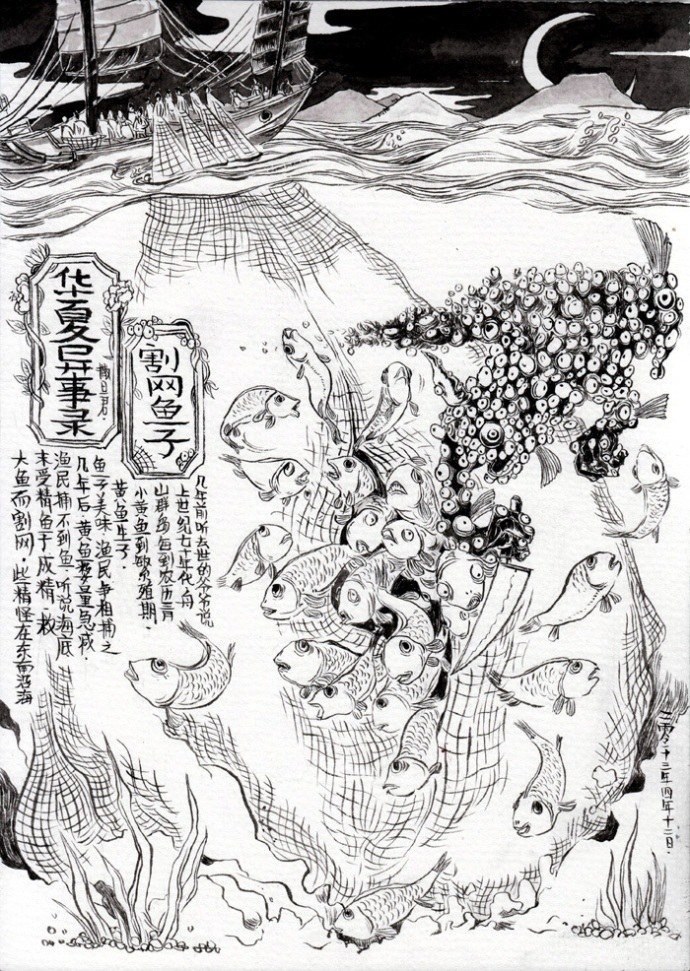 华夏异事录
割网鱼子
几年前听去世的爷爷说
上世纪七十年代,舟
山群岛每到农历三月
小黄鱼到繁殖期.
黄鱼生子.
鱼子美味.渔民争相捕之
几年后.黄鱼数量急减.
渔民捕不到鱼.听说海底
未受精鱼子成精.救
大鱼而割网.些精怪在东面沿海
二零一三年四年十二日.